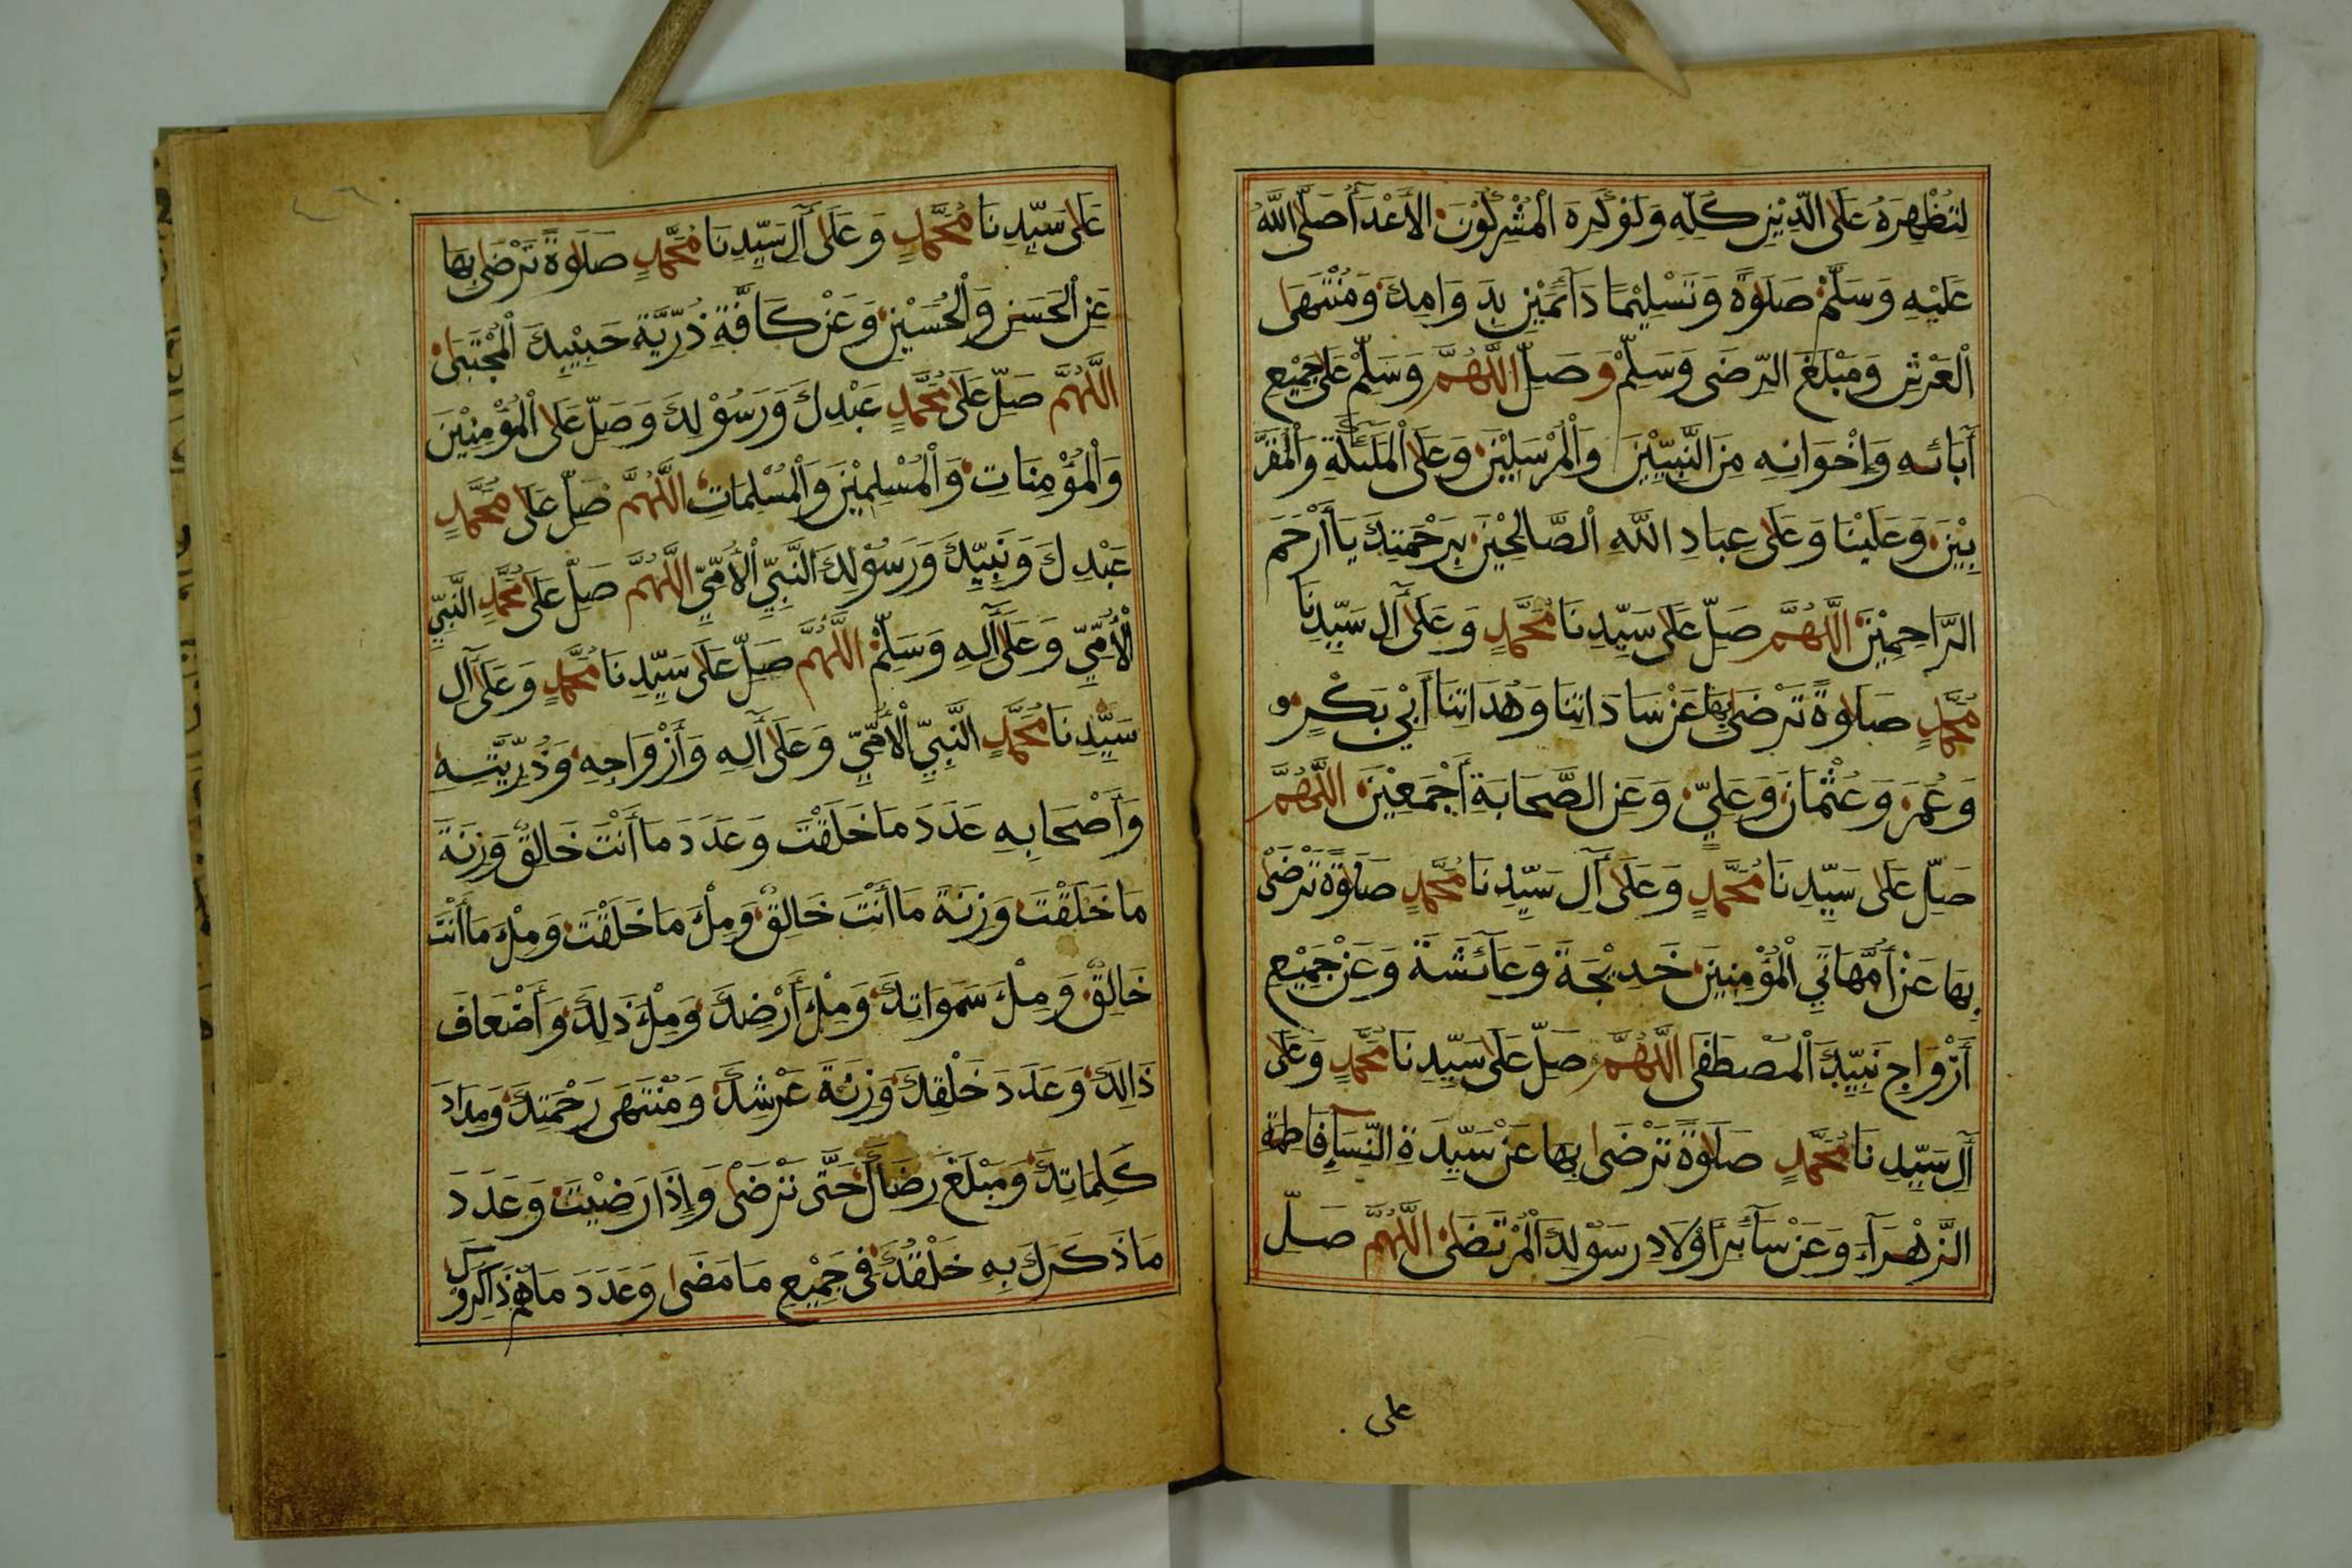 لِتُظْهِرَهُ عَلَى الدِّيْنِ كُلِّهِ وَلَوْ كَرِهَ الْمُشْرِكُوْنَ الأَعْدَآءُ صَلَّى اللَّهُ
عَلَيْهِ وَسَلَّمَ صَلٰوةً وَتَسْلِيْمًا دَآئمَيْنِ بِدَوَامِكَ وَمُنْتَهَى
الْعَرْشِ وَمَبْلَغَ الرِّضَى وَسَلِّمْ وَصَلِّ اللَّهُمَّ وَسَلِّمْ عَلَى جَمِيْعِ
آبَائهِ وَإِخْوَانِهِ مِنَ النَّبِيِّيْنَ وَالْمُرْسَلِيْنَ وَعَلَى الْمَلَئكَةِ وَالْمُقَرَّ
بِيْنَ وَعَلَيْنَا وَعَلَى عِبَادِ اللَّهِ الصَّالِحِيْنَ بِرَحْمَتِكَ يَا أَرْحَمَ
الرَّاحِمِيْنَ اللَّهُمَّ صَلِّ عَلَى سَيِّدِنَا مُحَمَّدٍ وَعَلَى آلِ سَيِّدِنَا
مُحَمَّدٍ صَلَاوةً تَرْضَى بِهَا عَنْ سَادَاتِنَا وَهُدَاتِنَا أَبِيْ بَكْرٍ
وَعُمَرَ وَعُثْمَانَ وَعَلِيٍّ وَعَنِ الصَّحَابَةِ أَجْمَعِيْنَ اللَّهُمَّ
صَلِّ عَلَى سَيِّدِنَا مُحَمَّدٍ وَعَلَى آلِ سَيِّدِنَا مُحَمَّدٍ صَلَاوةً تَرْضَى
بِهَا عَنْ أُمَّهَاتِي الْمُؤْمِنِيْنَ خَدِيْجَةَ وَعَآئشَةَ وَعَنْ جَمِيْعِ
أَزْوَاجِ نَبِيِّكَ الْمُصْطَفَى اللَّهُمَّ صَلِّ عَلَى سَيِّدِنَا مُحَمَّدٍ وَعَلَى
آلِ سَيِّدِنَا مُحَمَّدٍ صَلَاوةً تَرْضَى بِهَا عَنْ سَيِّدَةِ النِّسَاءِ فَاطِمَةِ
الزَّهْرَآءِ وَعَنْ سَآئرِ أَوْلَادِ رَسُوْلِكَ الْمُرْتَضَى اللَّهُمَّ صَلِّ
على
عَلَى سَيِّدِنَا مُحَمَّدٍ وَعَلَى آلِ سَيِّدِنَا مُحَمَّدٍ صَلَاوةً تَرْضَى بِهَا
عَنِ الْحَسَنِ وَالْحُسَيْنِ وَعَنْ كَافَّةِ ذُرِّيَّةِ حَبِيْبِكَ الْمُجْتَبَى
اللَّهُمَّ صَلِّ عَلَى مُحَمَّدٍ عَبْدِكَ وَرَسُوْلِكَ وَصَلِّ عَلَى الْمُؤْمِنِيْنَ
وَالْمُؤْمِنَاتِ وَالْمُسْلِمِيْنَ وَالْمُسْلِمَاتِ اللَّهُمَّ صَلِّ عَلَى مُحَمَّدٍ
عَبْدِكَ وَنَبِيِّكَ وَرَسُوْلِكَ النَّبِيِّ الْأُمِّيِّ اللَّهُمَّ صَلِّ عَلَى مُحَمَّدٍ النَّبِيِّ
الْأُمِّيِّ وَعَلَى آلِهِ وَسَلِّمْ اللَّهُمَّ صَلِّ عَلَى سَيِّدِنَا مُحَمَّدٍ وَعَلَى آلِ
سَيِّدِنَا مُحَمَّدٍ النَّبِيِّ الْأُمِّيِّ وَعَلَى آلِهِ وَأَزْوَاجِهِ وَذُرِّيَّتِهِ
وَأَصْحَابِهِ عَدَدَ مَا خَلَقْتَ وَعَدَدَ مَا أَنْتَ خَالِقٌ وَزِنَةَ
مَا خَلَقْتَ وَزِنَةَ مَا أَنْتَ خَالِقٌ وَمِلْءَ مَا خَلَقْتَ وَمِلْءَ مَا أَنْتَ
خَالِقٌ وَمِلْءَ سَمَوَاتِكَ وَمِلْءَ أَرْضِكَ وَمِلْءَ ذَلِكَ وَأَضْعَافَ
ذَالِكَ وَعَدَدَ خَلْقِكَ وَزِنَةَ عَرْشِكَ وَمُنْتَهَى رَحْمَتِكَ وَمِدَادَ
كَلِمَاتِكَ وَمَبْلَغَ رِضَاكَ حَتَّى تَرْضَى وَإِذَا رَضِيْتَ وَعَدَدَ
مَا ذَكَرَكَ بِهِ خَلْقُكَ فِي جَمِيْعِ مَا مَضَى وَعَدَدَ مَا هُمْ ذَاكِرُوْ